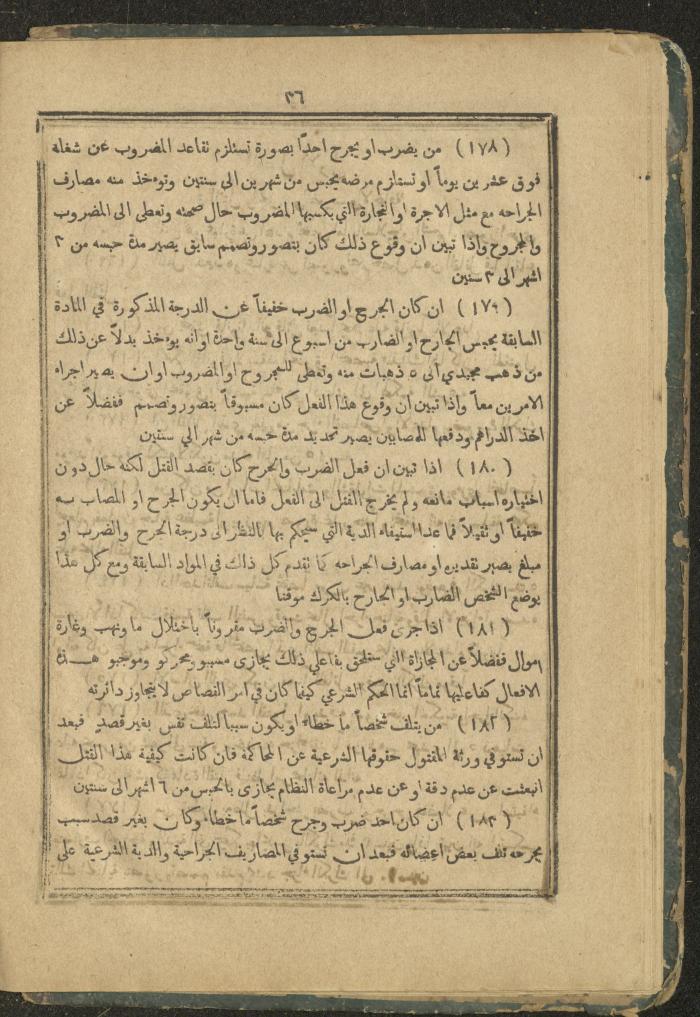 ٣٦
( ١٧٨ ) من يضرب او يجرح احدًا بصورة تستلزم تقاعد المضروب عن شغله
فوق عشرين يوماً او تستلزم مرضه يحبس من شهرين الى سنتين وتوءخذ منه مصارف
الجراحه مع مثل الاجرة او التجارة التي يكسبها المضروب حال صحته وتعطى الى المضروب
والمجروح واذا تبين ان وقوع ذلك كان بتصور وتصمم سابق يصير مدة حبسه من ٣
اشهر الى ٣ سنين
( ١٧٩ ) ان كان الجرح او الضرب خفيفاً عن الدرجة المذكورة في المادة
السابقة يحبس الجارح او الضارب من اسبوع الى سنة واحدة او انه يوءخذ بدلاً عن ذلك
من ذهب مجيدي الى ٥ ذهبات منه وتعطى للمجروح او المضروب او ان يصير اجراه
الامرين معاً واذا تبين ان وقوع هذا الفعل كان مسبوقاً بتصور وتصمم ففضلاً عن
اخذ الدراهم ودفعها للمصابين يصير تحديد مدة حبسه من شهر الى سنتين
( ١٨٠ ) اذا تبين ان فعل الضرب والجرح كان بقصد القتل لكنه حال دون
اختياره اسباب مانعه ولم يخرج القتل الى الفعل فاما ان يكون الجرح او المصاب به
خفيفاً او ثقيلاً فما عدا استيفاء الدية التي سيحكم بها بالنظر الى درجة الجرح والضرب او
مبلغ يصير تقديره او مصارف الجراحه كما تقدم كل ذلك في المواد السابقة ومع كل هذا
يوضع الشخص الضارب او الجارح بالكرك موقتا
( ١٨١ ) اذا جرى فعل الجرح والضرب مقروناً باختلال ما ونهب وغارة
اموال ففضلاً عن المجازاة التي ستلحق بفاعلي ذلك يجازى مسببو ومحركو وموجبو هذه
الافعال كفاعليها تماماً انما الحكم الشرعي كيفما كان في امر القصاص لا يتجاوز دائرته
( ١٨٢ ) من يتلف شخصاً ما خطاء او يكون سببا لتلف نفس بغير قصد فبعد
ان تستوفي ورثة المقتول حقوقها الشرعية عن المحاكمة فان كانت كيفية هذا القتل
انبعثت عن عدم دقة او عن عدم مراعاة النظام يجازى بالحبس من ٦ اشهر الى سنتين
( ١٨٣ ) ان كان احد ضرب وجرح شخصاً ما خطاء وكان بغير قصد سبب
بجرحه تلف بعض اعضائه فبعد ان تستوفي المصاريف الجراحية والدية الشرعية على